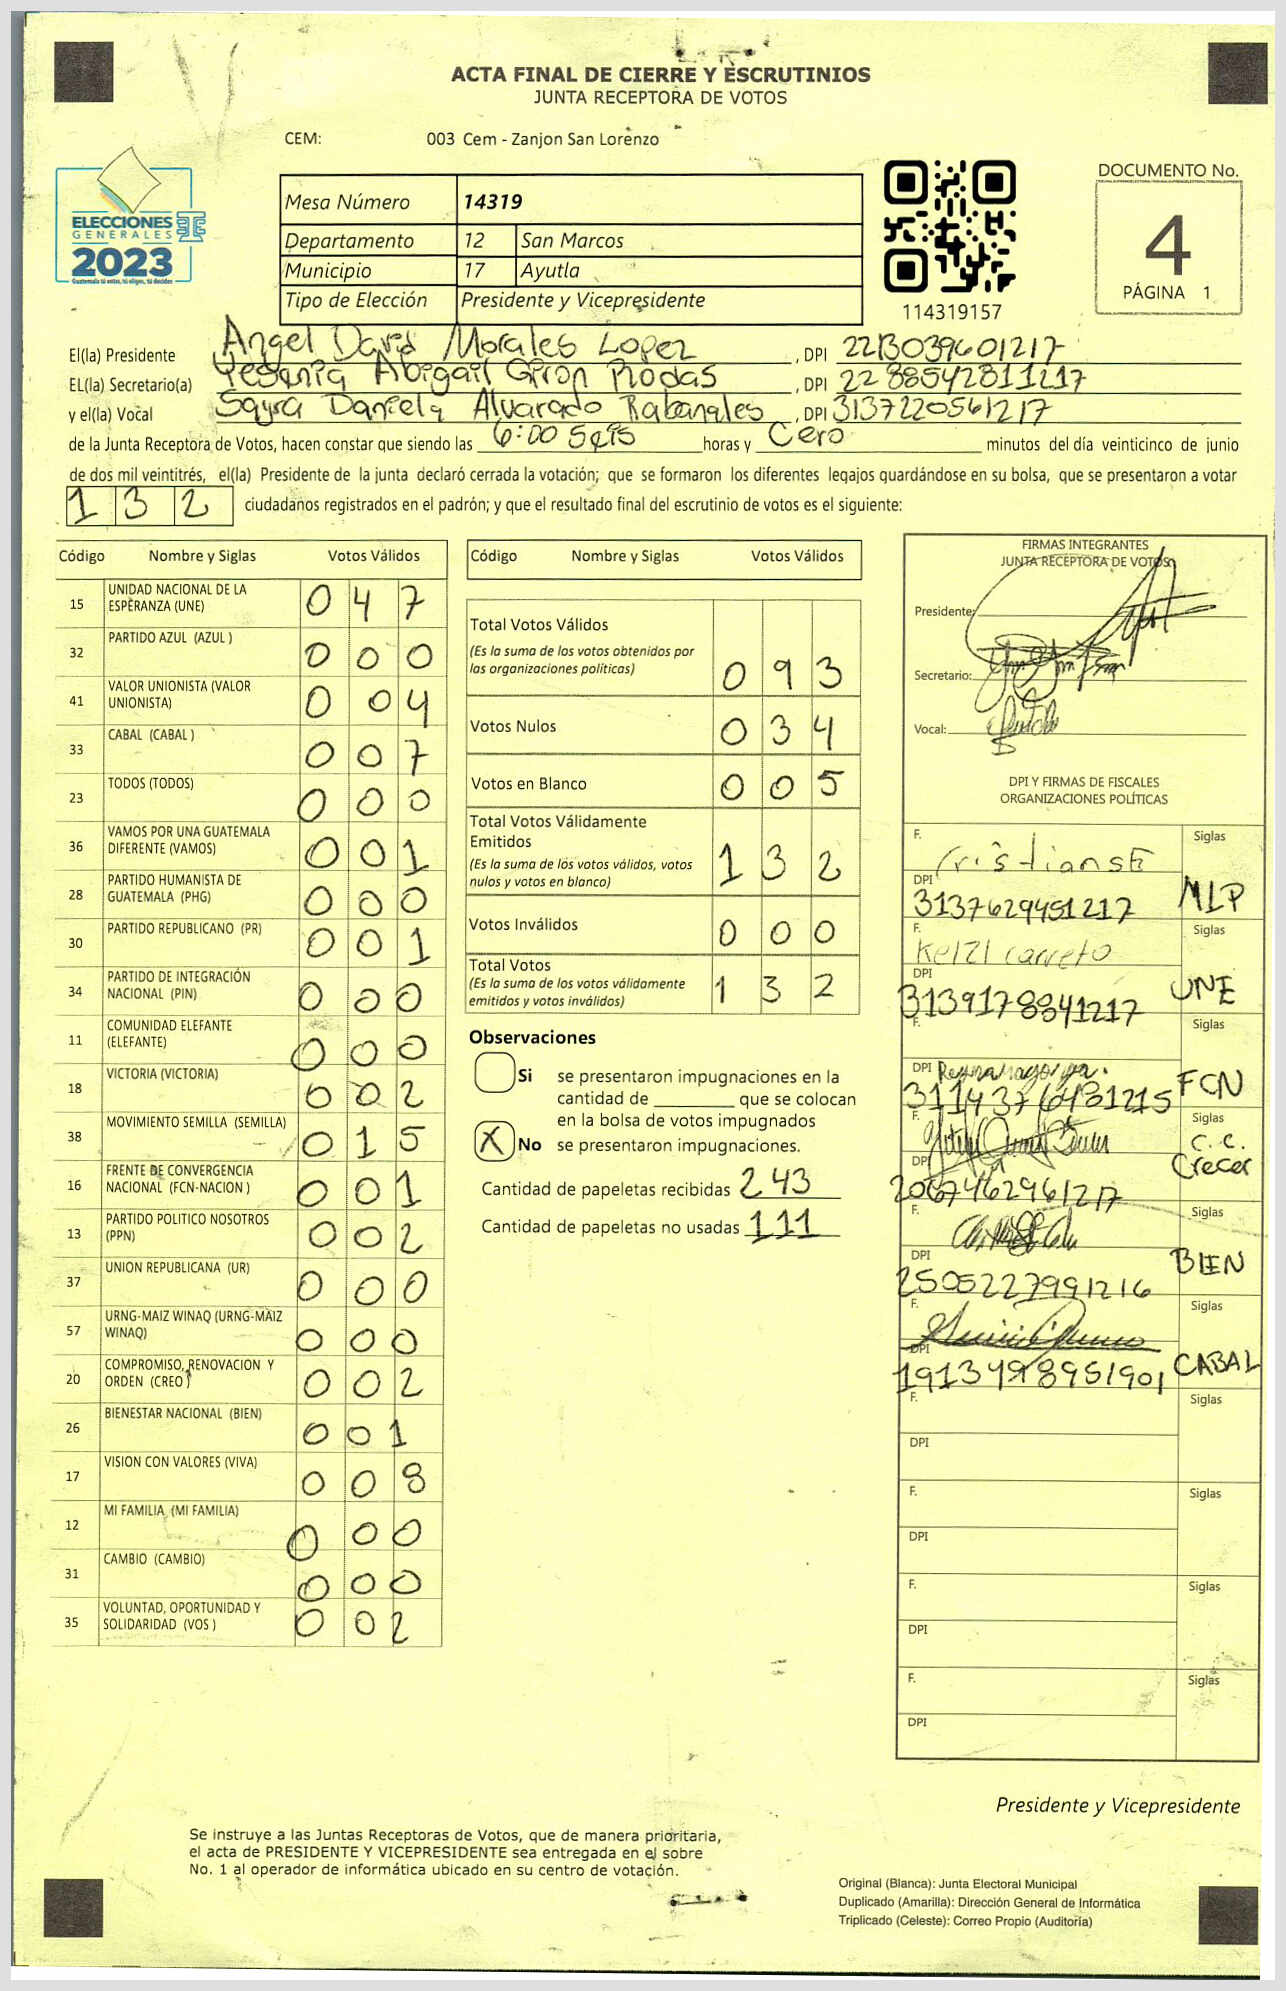 ACTA FINAL DE CIERRE Y ESCRUTINIOS
JUNTA RECEPTORA DE VOTOS
CEM: 003 Cem - Zanjon San Lorenzo
ELECCIONES
GENERALES
2023
Guatemala tú votas, tú eliges, tú decides
Mesa Número 14319
Departamento 12 San Marcos
Municipio 17 Ayutla
Tipo de Elección Presidente y Vicepresidente
114319157
DOCUMENTO No.
4
PÁGINA 1
El(la) Presidente Angel David Morales Lopez , DPI 2213039601217
EL(la) Secretario(a) Yesenia Abigail Giron Rodas , DPI 2288542811217
y el(la) Vocal Sayra Daniela Alvarado Rabanales , DPI 3137220561217
de la Junta Receptora de Votos, hacen constar que siendo las 6:00 seis horas y Cero minutos del día veinticinco de junio
de dos mil veintitrés, el(la) Presidente de la junta declaró cerrada la votación; que se formaron los diferentes legajos quardándose en su bolsa, que se presentaron a votar
132 ciudadanos registrados en el padrón; y que el resultado final del escrutinio de votos es el siguiente:
Código Nombre y Siglas Votos Válidos
15 UNIDAD NACIONAL DE LA ESPERANZA (UNE) 047
32 PARTIDO AZUL (AZUL ) 000
41 VALOR UNIONISTA (VALOR UNIONISTA) 004
33 CABAL (CABAL ) 007
23 TODOS (TODOS) 000
36 VAMOS POR UNA GUATEMALA DIFERENTE (VAMOS) 001
28 PARTIDO HUMANISTA DE GUATEMALA (PHG) 000
30 PARTIDO REPUBLICANO (PR) 001
34 PARTIDO DE INTEGRACIÓN NACIONAL (PIN) 000
11 COMUNIDAD ELEFANTE (ELEFANTE) 000
18 VICTORIA (VICTORIA) 002
38 MOVIMIENTO SEMILLA (SEMILLA) 015
16 FRENTE DE CONVERGENCIA NACIONAL (FCN-NACION ) 001
13 PARTIDO POLITICO NOSOTROS (PPN) 002
37 UNION REPUBLICANA (UR) 000
57 URNG-MAIZ WINAQ (URNG-MAIZ WINAQ) 000
20 COMPROMISO, RENOVACION Y ORDEN (CREO ) 002
26 BIENESTAR NACIONAL (BIEN) 001
17 VISION CON VALORES (VIVA) 008
12 MI FAMILIA (MI FAMILIA) 000
31 CAMBIO (CAMBIO) 000
35 VOLUNTAD, OPORTUNIDAD Y SOLIDARIDAD (VOS ) 002
Código Nombre y Siglas Votos Válidos
Total Votos Válidos
(Es la suma de los votos obtenidos por
las organizaciones políticas) 093
Votos Nulos 034
Votos en Blanco 005
Total Votos Válidamente
Emitidos
(Es la suma de los votos válidos, votos
nulos y votos en blanco) 132
Votos Inválidos 000
Total Votos
(Es la suma de los votos válidamente
emitidos y votos inválidos) 132
Observaciones
Si se presentaron impugnaciones en la
cantidad de ________ que se colocan
en la bolsa de votos impugnados
X No se presentaron impugnaciones.
Cantidad de papeletas recibidas 243
Cantidad de papeletas no usadas 111
FIRMAS INTEGRANTES
JUNTA RECEPTORA DE VOTOS
Presidente:
Secretario:
Vocal:
DPI Y FIRMAS DE FISCALES
ORGANIZACIONES POLÍTICAS
F. Siglas
DPI 3137629451217 MLP
F. Keizi Carreto Siglas
DPI 3139178841217 UNE
F. Siglas
DPI 3114376481215 FCN
F. Siglas
DPI 2067462961217 C.C. Crecer
F. Siglas
DPI 2505227991216 BIEN
F. Siglas
DPI 1913498951901 CABAL
F. Siglas
DPI
F. Siglas
DPI
F. Siglas
DPI
F. Siglas
DPI
Presidente y Vicepresidente
Se instruye a las Juntas Receptoras de Votos, que de manera prioritaria,
el acta de PRESIDENTE Y VICEPRESIDENTE sea entregada en el sobre
No. 1 al operador de informática ubicado en su centro de votación.
Original (Blanca): Junta Electoral Municipal
Duplicado (Amarilla): Dirección General de Informática
Triplicado (Celeste): Correo Propio (Auditoría)